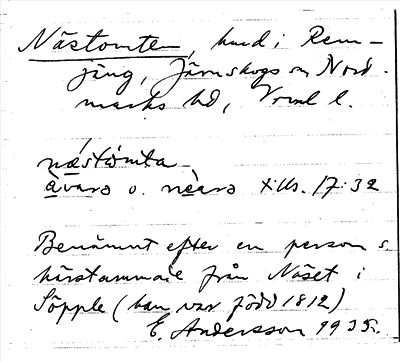 Nästomten, hmd i Rem-
jäng, Järnskogs sn Nord-
marks hd, Vrml l.
næstòmta
ävarə o. neàrə tills. 17:32
Benämnt efter en person s.
härstammade från Näset i
Söpple (han var född 1812)
E. Andersson 1935.